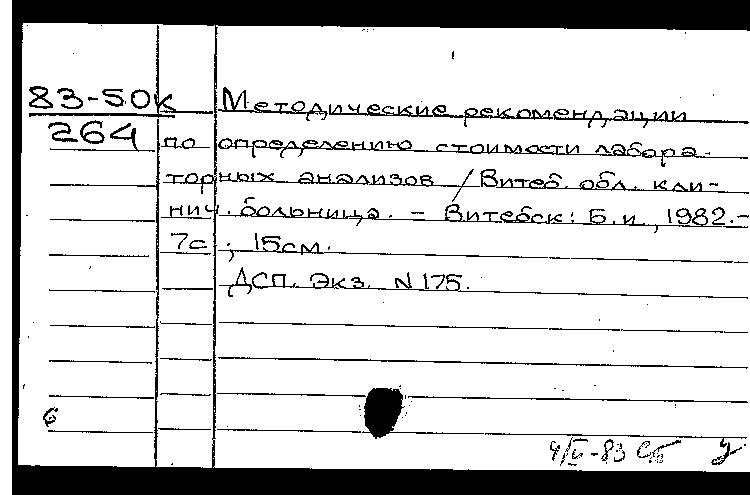 83-50к Методические рекомендации
264 по определению стоимости лабора-
торных анализов / Витеб. обл. кли-
нич. больница. - Витебск: Б. и., 1982.-
7с.; 15см.
ДСП. Экз. N 175.
6